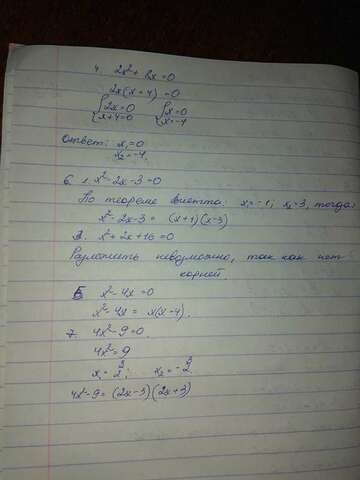 4. 2x²+8x=0
2x(x+4)=0
{2x=0 {x=0
{x+4=0 {x=-4
Ответ: x₁=0
x₂=-4.
6. 1. x²-2x-3=0
По теореме Виетта: x₁=-1; x₂=3, тогда:
x²-2x-3= (x+1)(x-3)
2. x²+2x+16=0
Разложить невозможно, так как нет
корней.
5 x²-4x=0
x²-4x= x(x-4).
7. 4x²-9=0.
4x²=9
x₁=3/2; x₂=-3/2
4x²-9=(2x-3)(2x+3)